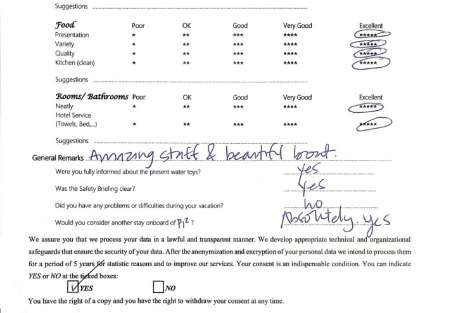 Suggestions
Food Poor OK Good Very Good Excellent
Presentation * ** *** **** *****
Variety * ** *** **** *****
Quality * ** *** **** *****
Kitchen (clean) * ** *** **** *****
Suggestions
Rooms/ Bathrooms Poor OK Good Very Good Excellent
Neatly * ** *** **** *****
Hotel Service
(Towels, Bed,...) * ** *** **** *****
Suggestions
General Remarks Amazing staff & beautiful boat.
Were you fully informed about the present water toys? Yes
Was the Safety Briefing clear? Yes
Did you have any problems or difficulties during your vacation? no
Would you consider another stay onboard of ? Absolutely yes
We assure you that we process your data in a lawful and transparent manner. We develop appropriate technical and organizational
safeguards that ensure the security of your data. After the anonymization and encryption of your personal data we intend to process them
for a period of 5 years for statistic reasons and to improve our services. Your consent is an indispensable condition. You can indicate
YES or NO at the ticked boxes:
YES NO
You have the right of a copy and you have the right to withdraw your consent at any time.